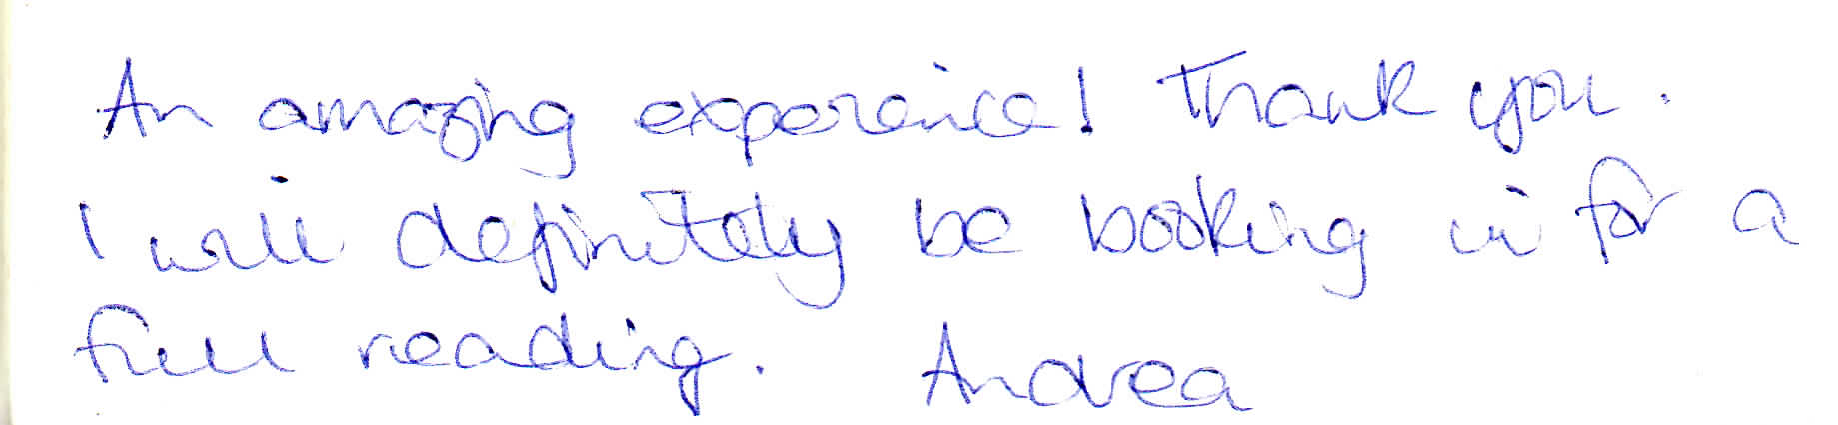 An amazing experience! Thank you.
I will definitely be booking in for a
full reading. Andrea